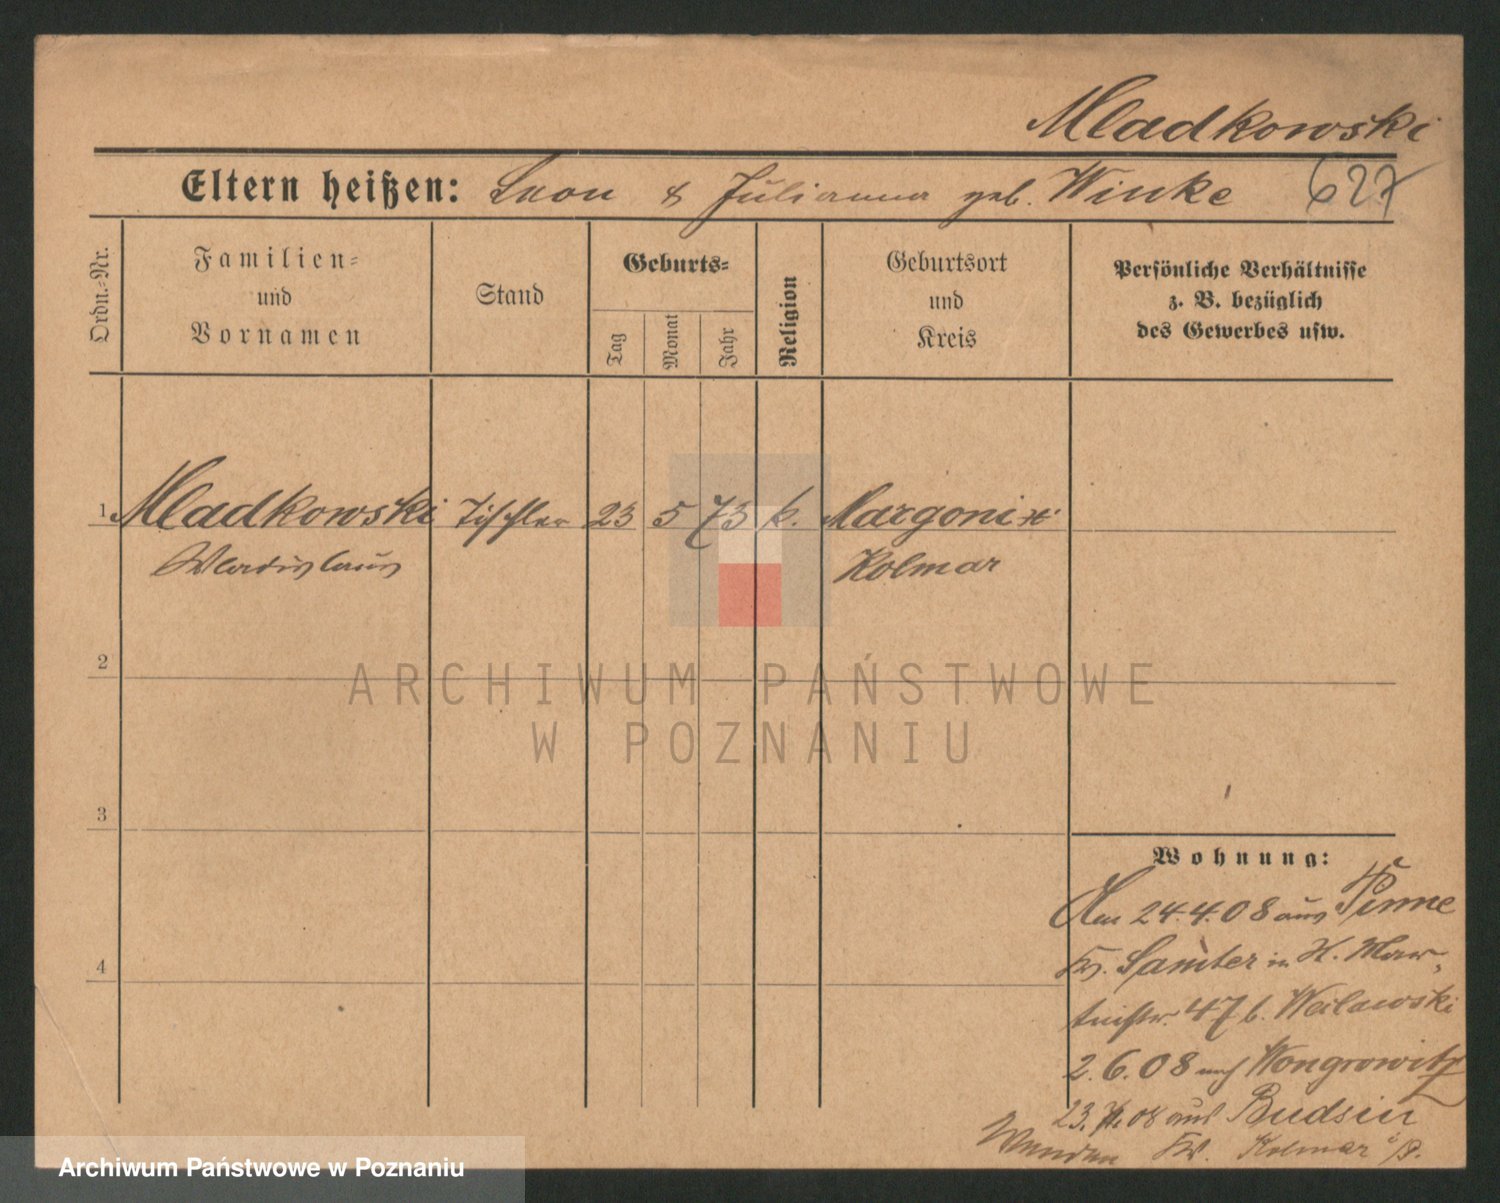 Mladkowski
Eltern heißen: Leon & Julianna geb. Winke 627
Ordn.-Nr.
Familien-
und
Vornamen
Stand
Geburts-
Tag
Monat
Jahr
Religion
Geburtsort
und
Kreis
Persönliche Verhältnisse
z. B. bezüglich
des Gewerbes usw.
1 Mladkowski Tischler 23 5 73 k. Margonin
Wladislaus Kolmar
2
ARCHIWUM PAŃSTWOWE
W POZNANIU
3
Wohnung:
Am 24.4.08 aus Pinne
Kr. Samter in
4
47 b.
2.6.08 nach Wongrowitz
23. 08 aus Budsin
Kr. Kolmar i/P.
Archiwum Państwowe w Poznaniu